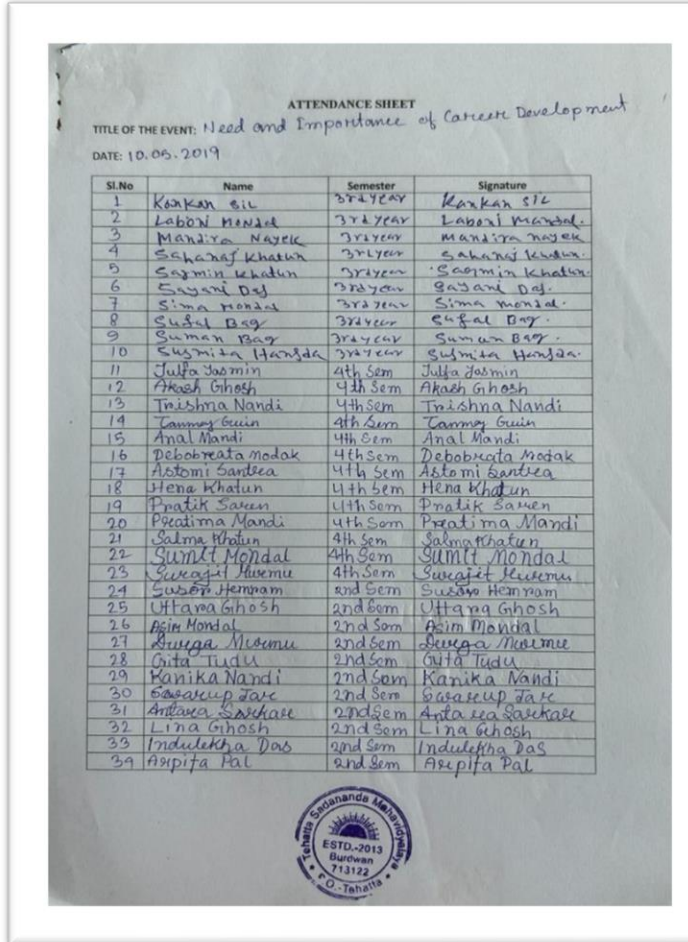 ATTENDANCE SHEET
TITLE OF THE EVENT: Need and Importance of Career Development
DATE: 10.05.2019
Sl.No Name Semester Signature
1 Kankan Sil 3rd year Kankan Sil
2 Laboni Mondal 3rd year Laboni Mandal.
3 Mandira Nayek 3rd year Mandira nayek
4 Sahanaj Khatun 3rd year Sahanaj Khatun.
5 Sasmin Khatun 3rd year Sasmin Khatun.
6 Sayani Das 3rd year Sayani Das.
7 Sima Mondal 3rd year Sima mondal.
8 Sufal Bag 3rd year Sufal Bag.
9 Suman Bag 3rd year Suman Bag.
10 Susmita Hansda 3rd year Susmita Hansda.
11 Julfa Yasmin 4th Sem Julfa Yasmin
12 Akash Ghosh 4th Sem Akash Ghosh
13 Trishna Nandi 4th Sem Trishna Nandi
14 Tanmoy Guin 4th Sem Tanmoy Guin
15 Anal Mandi 4th Sem Anal Mandi
16 Debobrata Modak 4th Sem Debobrata Modak
17 Astomi Santra 4th Sem Astomi Santra
18 Hena Khatun 4th Sem Hena Khatun
19 Pratik Saren 4th Sem Pratik Saren
20 Pratima Mandi 4th Sem Pratima Mandi
21 Salma Khatun 4th Sem Salma Khatun
22 Sumit Mondal 4th Sem Sumit Mondal
23 Surajit Murmu 4th Sem Surajit Murmu
24 Suson Hemram 2nd Sem Suson Hemram
25 Uttara Ghosh 2nd Sem Uttara Ghosh
26 Asim Mondal 2nd Sem Asim Mondal
27 Durga Murmu 2nd Sem Durga Murmu
28 Gita Tudu 2nd Sem Gita Tudu
29 Kanika Nandi 2nd Sem Kanika Nandi
30 Swarup 2nd Sem Swarup
31 Antara Sarkar 2nd Sem Antara Sarkar
32 Lina Ghosh 2nd Sem Lina Ghosh
33 Indulekha Das 2nd Sem Indulekha Das
34 Arpita Pal 2nd Sem Arpita Pal
Tehatta Sadananda Mahavidyalaya
ESTD.-2013
Burdwan
713122
P.O.-Tehatta